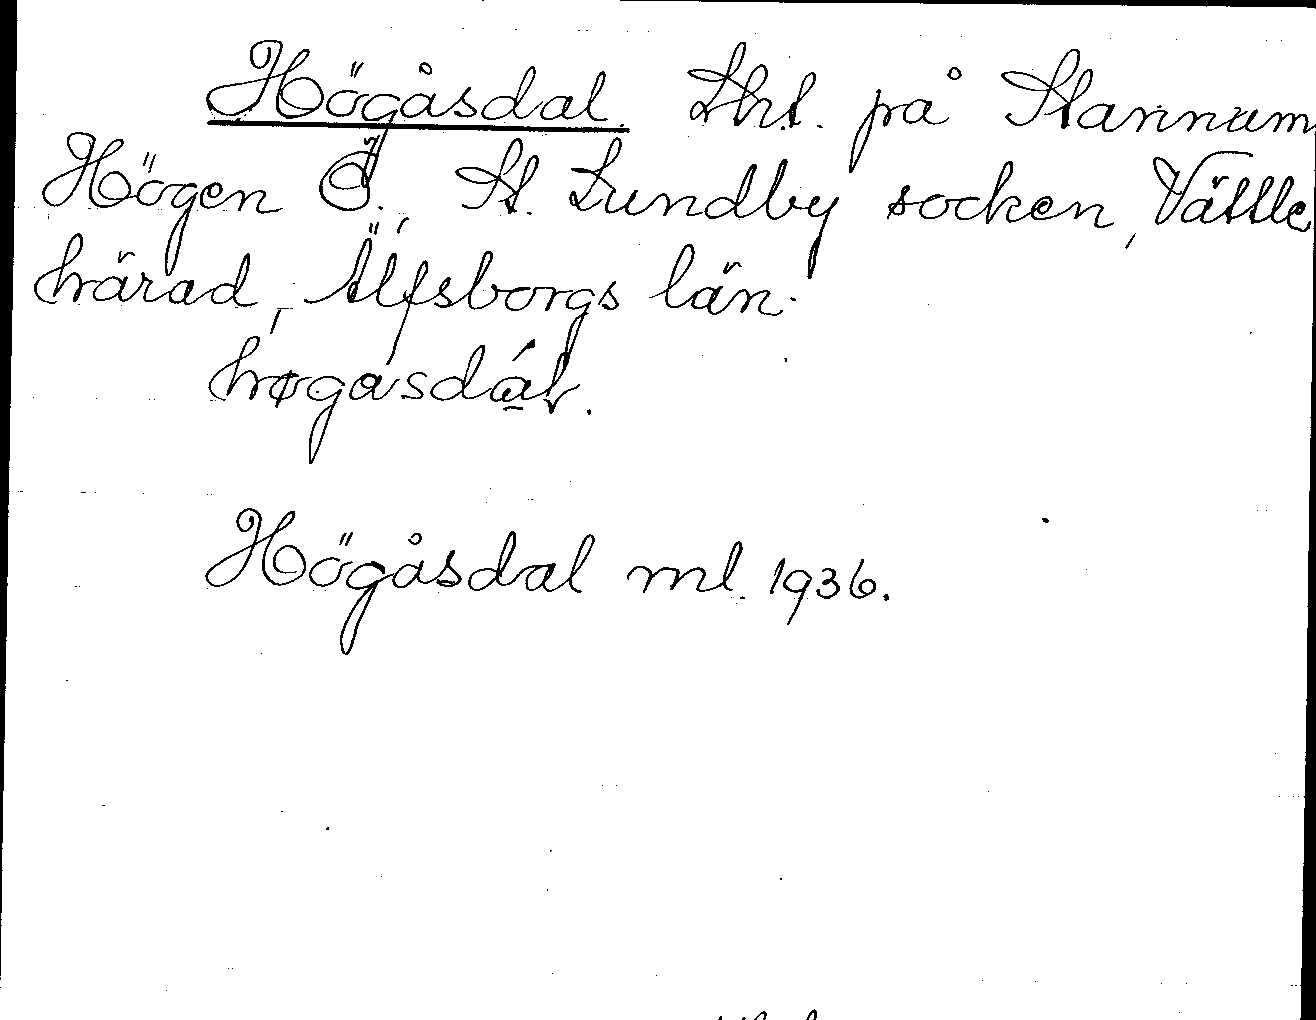 Högåsdal. Lht. på Stannum
Högen Ö., St. Lundby socken, Vättle
härad, Älfsborgs län.
høgåsdál.
Högåsdal ml. 1936.